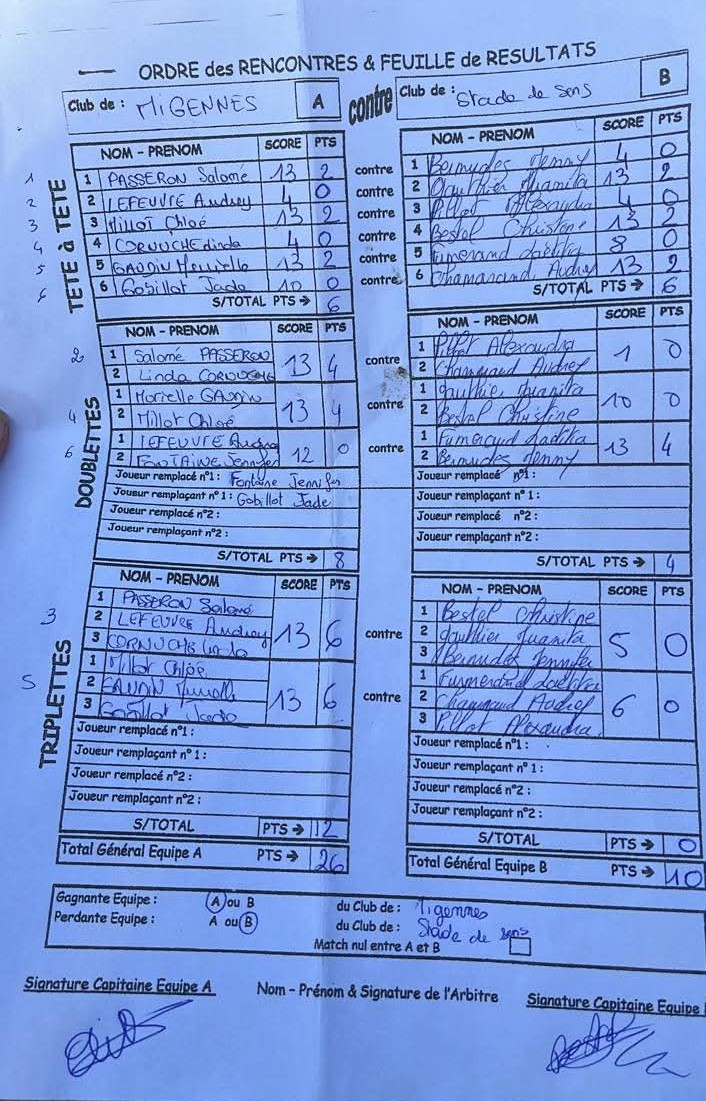 ORDRE des RENCONTRES & FEUILLE de RESULTATS
Club de : MiGENNES A contre Club de : Stade de Sens B
NOM - PRENOM SCORE PTS NOM - PRENOM SCORE PTS
TETE à TETE
1 1 PASSERON Salomé 13 2 contre 1 Bermudes Jenny 4 0
2 2 LEFEUVRE Audrey 4 0 contre 2 Gauthier Juanita 13 2
3 3 Millot Chloé 13 2 contre 3 Pillot Alexandra 4 0
4 4 CORNUCHE Linda 4 0 contre 4 Bestel Christine 13 2
5 5 GAUDIN Murielle 13 2 contre 5 Fumerand Laetitia 8 0
6 6 Gobillot Jade 10 0 contre 6 Chamarand Audrey 13 2
S/TOTAL PTS → 6 S/TOTAL PTS → 6
DOUBLETTES
NOM - PRENOM SCORE PTS NOM - PRENOM SCORE PTS
2 1 Salomé PASSERON 13 4 contre 1 Pillot Alexandra 1 0
2 Linda CORNUCHE 2 Audrey
4 1 Murielle GAUDIN 13 4 contre 1 Juanita 10 0
2 Millot Chloé 2 Bestel Christine
6 1 LEFEUVRE Audrey 12 0 contre 1 Laetitia 13 4
2 FONTAINE Jennyfer 2 Bermudes Jenny
Joueur remplacé n°1 : Fontaine Jennifer Joueur remplacé n°1 :
Joueur remplaçant n° 1 : Gobillot Jade Joueur remplaçant n° 1 :
Joueur remplacé n°2 : Joueur remplacé n°2 :
Joueur remplaçant n°2 : Joueur remplaçant n°2 :
S/TOTAL PTS → 8 S/TOTAL PTS → 4
TRIPLETTES
NOM - PRENOM SCORE PTS NOM - PRENOM SCORE PTS
3 1 PASSERON Salomé 13 6 contre 1 Bestel Christine 5 0
2 LEFEUVRE Audrey 2 Gauthier Juanita
3 CORNUCHE Linda 3 Bermudes Jennifer
5 1 Millot Chloé 13 6 contre 1 Laetitia 6 0
2 GAUDIN Murielle 2 Audrey
3 Gobillot Jade 3 Pillot Alexandra
Joueur remplacé n°1 : Joueur remplacé n°1 :
Joueur remplaçant n° 1 : Joueur remplaçant n° 1 :
Joueur remplacé n°2 : Joueur remplacé n°2 :
Joueur remplaçant n°2 : Joueur remplaçant n°2 :
S/TOTAL PTS → 12 S/TOTAL PTS → 0
Total Général Equipe A PTS → 26 Total Général Equipe B PTS → 10
Gagnante Equipe : A ou B du Club de : Migennes
Perdante Equipe : A ou B du Club de : Stade de Sens
Match nul entre A et B
Signature Capitaine Equipe A Nom - Prénom & Signature de l'Arbitre Signature Capitaine Equipe